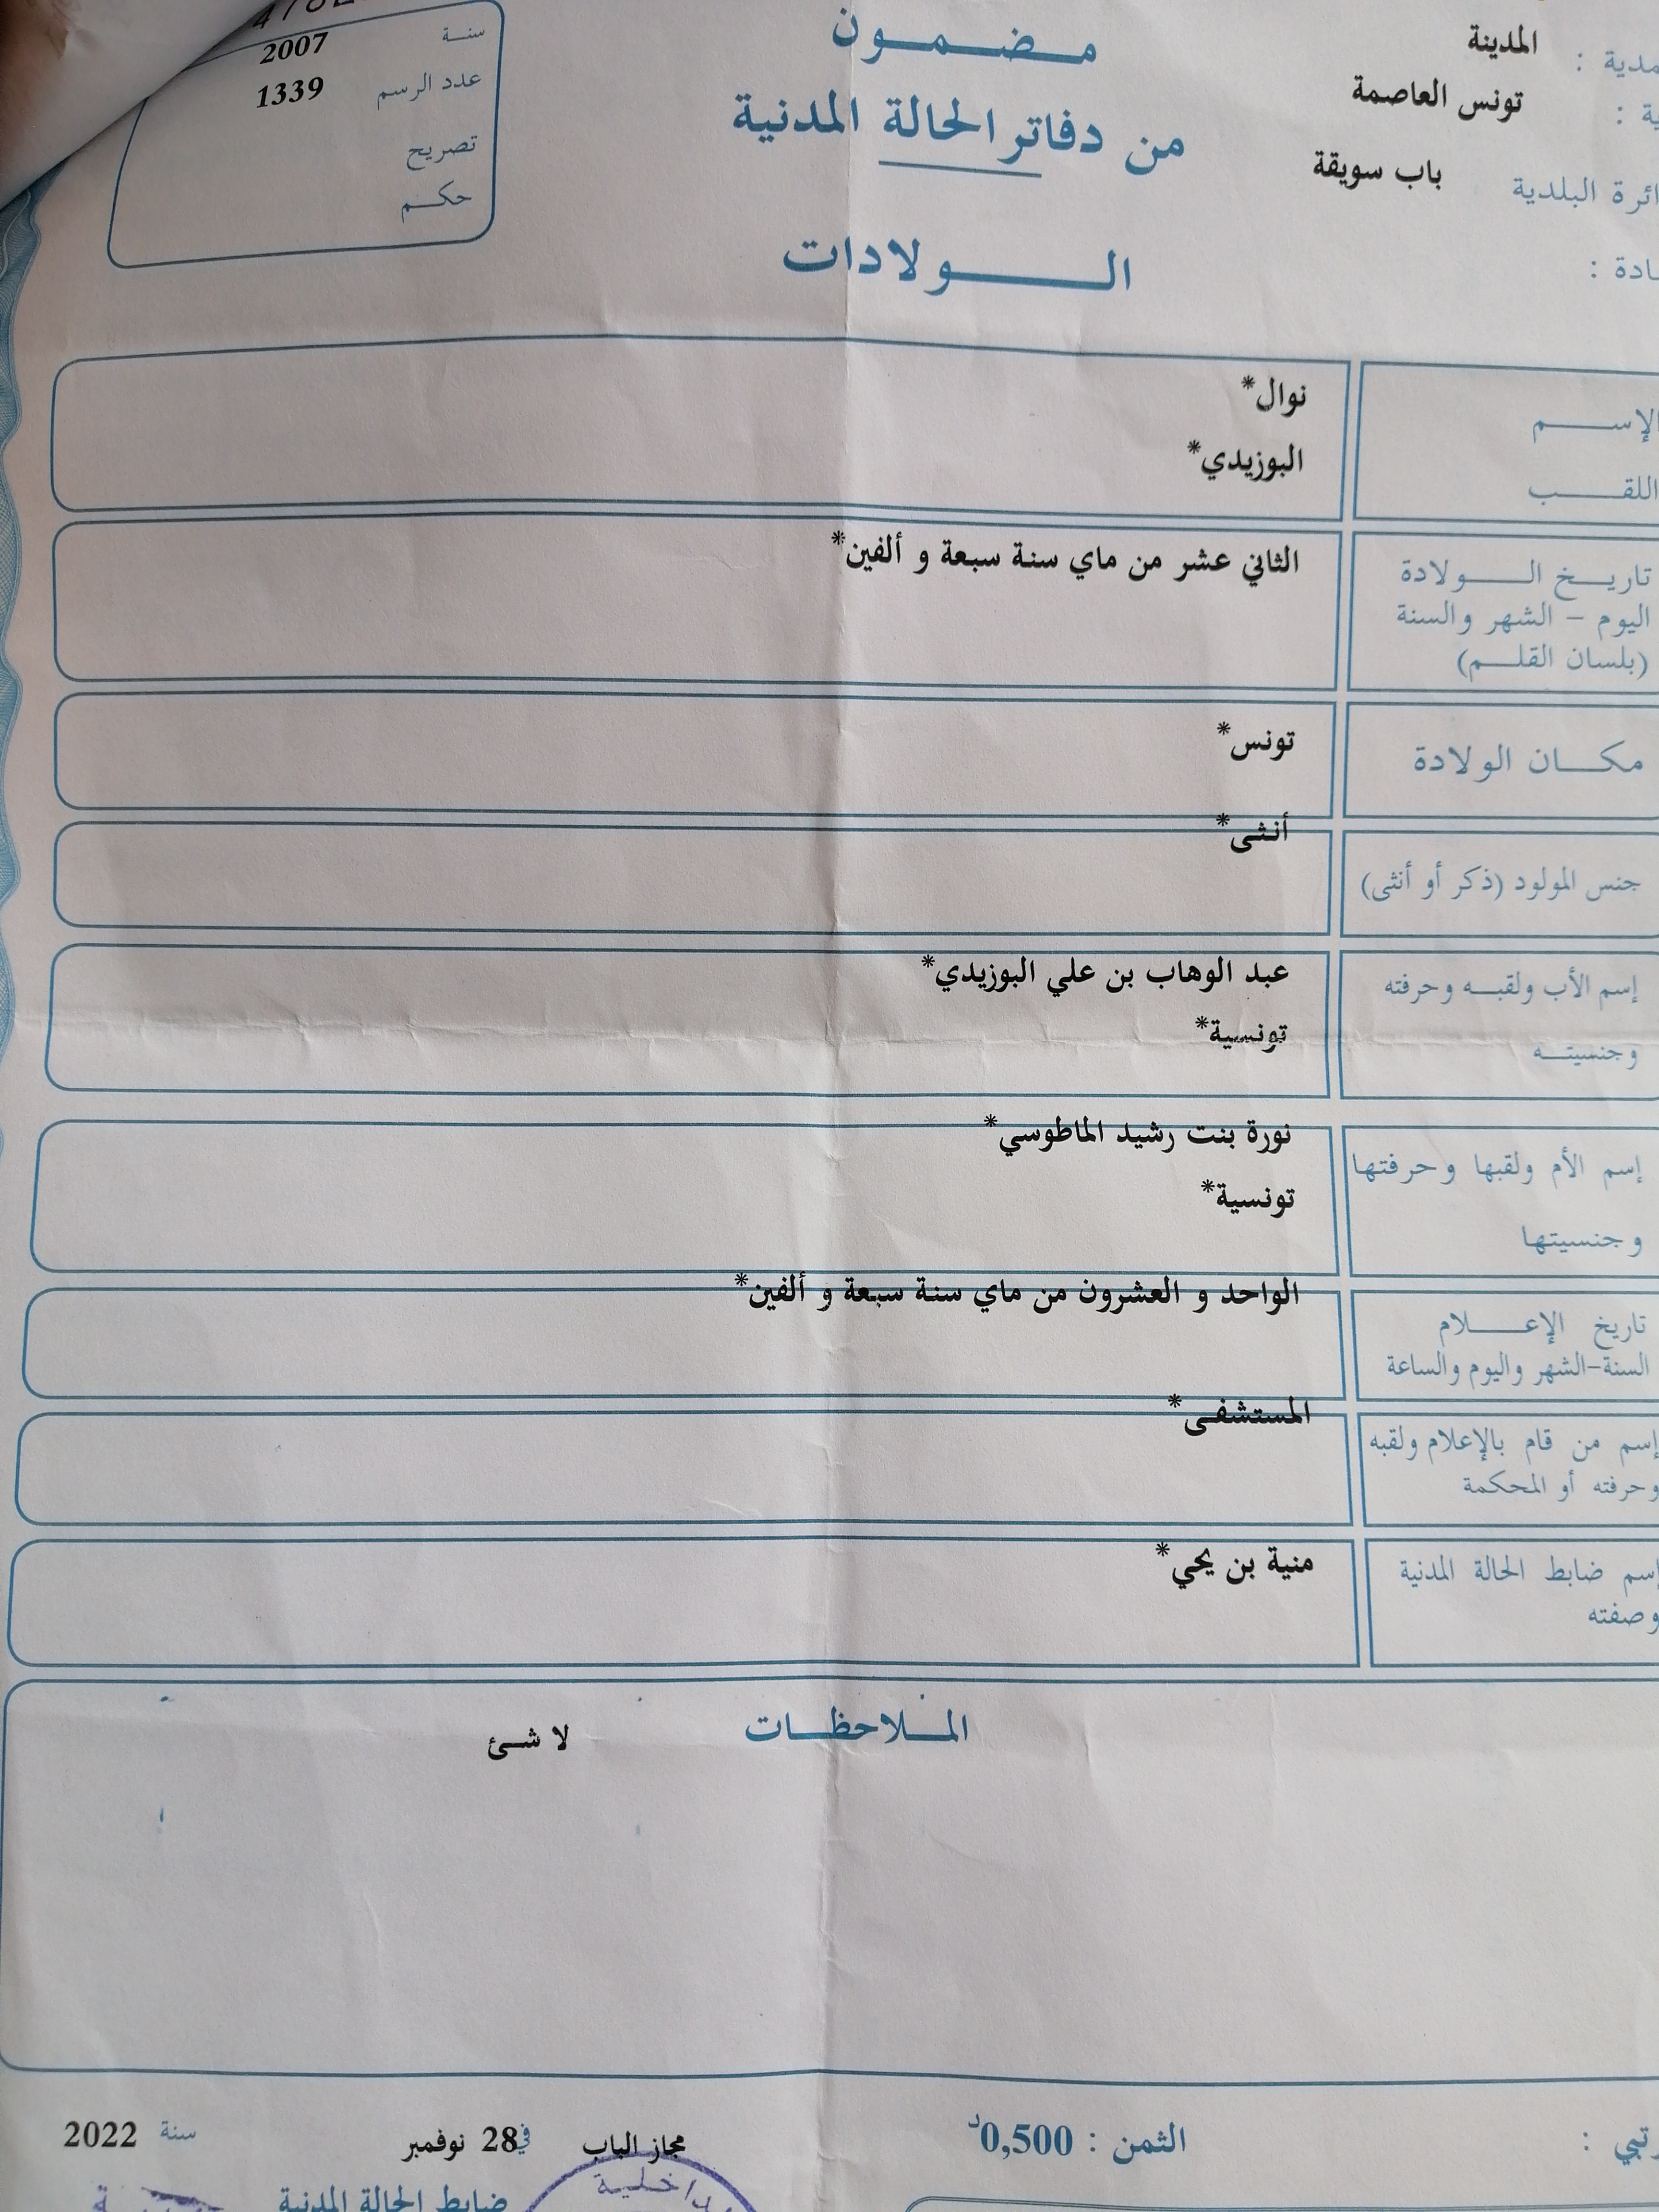 مضمون
من دفاتر الحالة المدنية
الولادات
المدينة
تونس العاصمة
باب سويقة
البلدية
سنة 2007
عدد الرسم 1339
تصريح
حكم
الإسم نوال*
اللقب البوزيدي*
تاريخ الولادة الثاني عشر من ماي سنة سبعة و ألفين*
اليوم - الشهر والسنة
(بلسان القلم)
مكان الولادة تونس*
جنس المولود (ذكر أو أنثى) أنثى*
إسم الأب ولقبه وحرفته عبد الوهاب بن علي البوزيدي*
وجنسيته تونسية*
إسم الأم ولقبها وحرفتها نورة بنت رشيد الماطوسي*
وجنسيتها تونسية*
تاريخ الإعلام الواحد و العشرون من ماي سنة سبعة و ألفين*
السنة-الشهر واليوم والساعة
إسم من قام بالإعلام ولقبه المستشفى*
وحرفته أو المحكمة
إسم ضابط الحالة المدنية منية بن يحي*
وصفته
الملاحظات
لا شئ
الثمن : 0,500د
مجاز الباب في 28 نوفمبر سنة 2022
ضابط الحالة المدنية